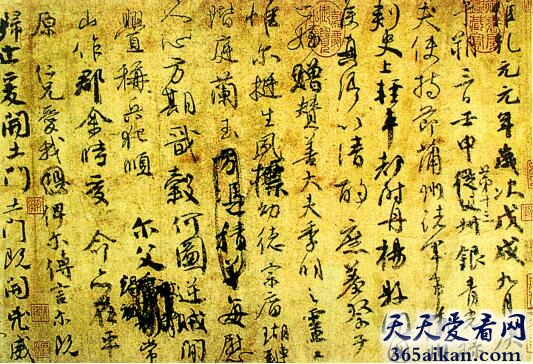 維乾元元年歲次戊戌九月庚
午朔三日壬申第十三叔銀青光
夫使持節蒲州諸軍事蒲州
刺史上輕車都尉丹楊縣開
國侯真卿以清酌庶羞祭于
亡姪贈贊善大夫季明之靈
惟爾挺生夙標幼德宗廟瑚璉
階庭蘭玉方憑積善每慰
人心方期戩穀何圖逆賊閒
釁稱兵犯順爾父常
山作郡余時受命亦在平
原仁兄愛我俾爾傳言爾既
歸止爰開土門土門既開兇威
天天爱看网
365aikan.com